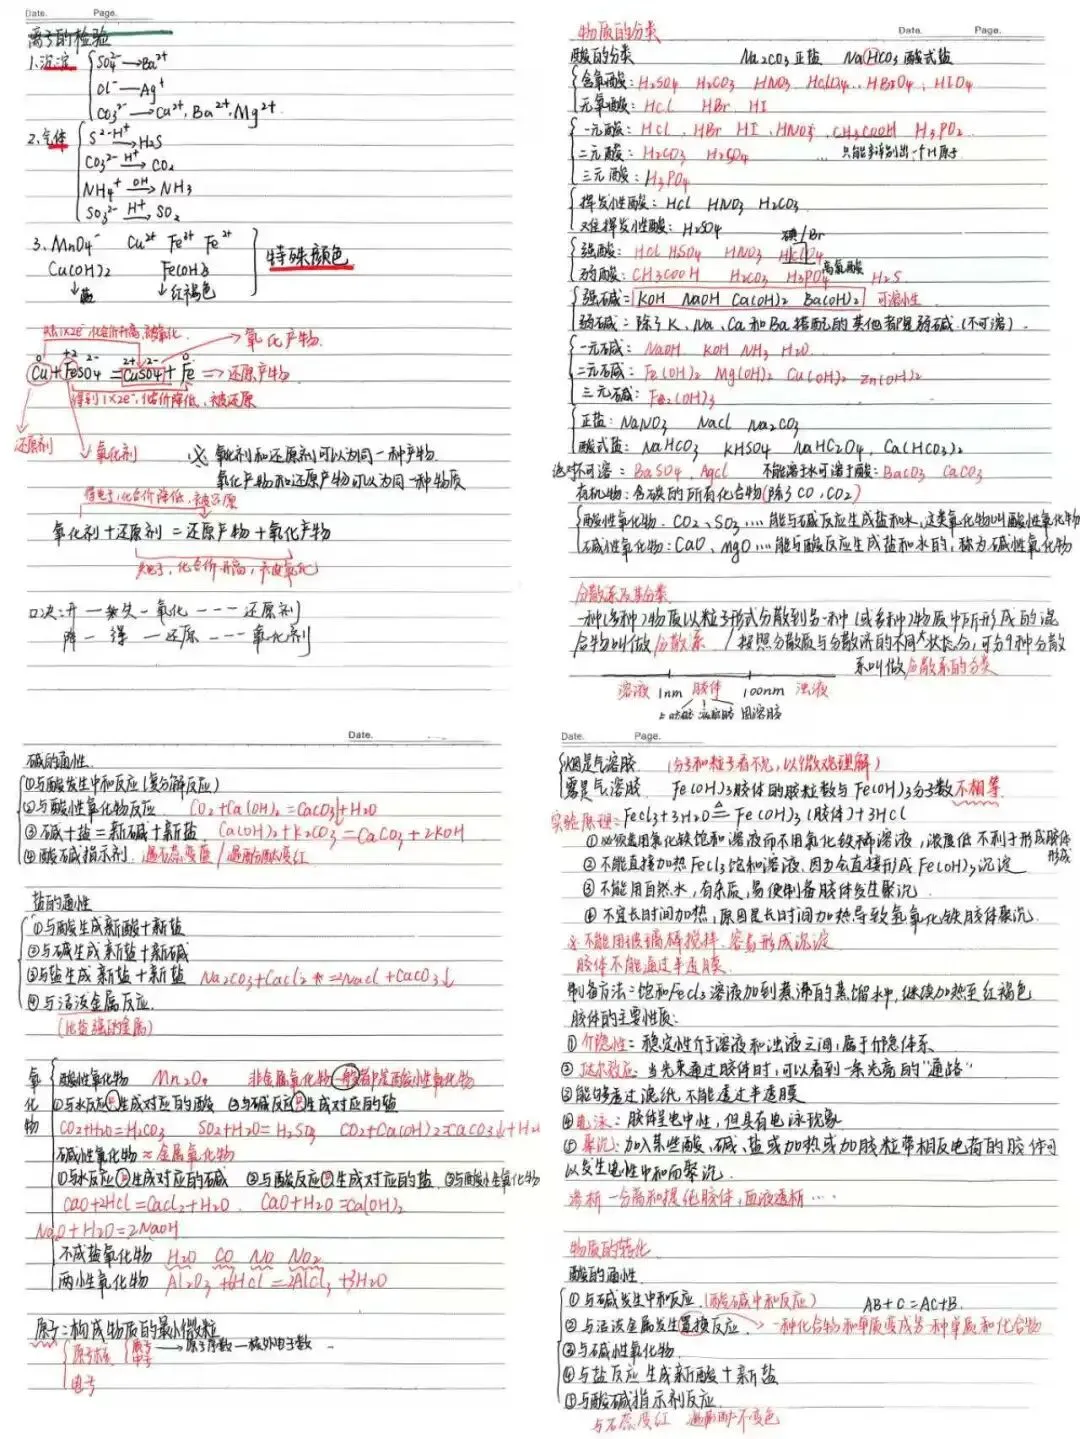 Date. Page.
离子的检验
1.沉淀 SO4²⁻→Ba²⁺
Cl⁻→Ag⁺
CO3²⁻→Ca²⁺、Ba²⁺、Mg²⁺
2.气体 S²⁻ H⁺→H2S
CO3²⁻ H⁺→CO2
NH4⁺ OH→NH3
SO3²⁻ H⁺→SO2
3. MnO4⁻ Cu²⁺ Fe³⁺ Fe²⁺
Cu(OH)2 Fe(OH)3 特殊颜色
↓蓝 ↓红褐色
失去1×2e⁻,化合价升高,被氧化 氧化产物
Cu+FeSO4=CuSO4+Fe ⇒还原产物
得到1×2e⁻,化合价降低,被还原
还原剂 氧化剂
※ 氧化剂和还原剂可以为同一种产物
氧化产物和还原产物可以为同一种物质
得电子,化合价降低,被还原
氧化剂+还原剂=还原产物+氧化产物
失电子,化合价升高,被氧化
口决:升一失一氧化一--还原剂
降一得一还原---氧化剂
物质的分类 Date. Page.
酸的分类 Na2CO3正盐 NaHCO3酸式盐
含氧酸: H2SO4 H2CO3 HNO3 HClO4、HBrO4、HIO4
无氧酸: HCl HBr HI
一元酸: HCl、HBr HI、HNO3、CH3COOH H3PO2
二元酸: H2CO3 H2SO4 只能电离出一个H原子
三元酸: H3PO4
挥发性酸: HCl HNO3 H2CO3
难挥发性酸: H2SO4 碘/Br
强酸: HCl HSO4 HNO3 HClO4 高氯酸
弱酸: CH3COOH H2CO3 H3PO4 H2S
强碱= KOH NaOH Ca(OH)2 Ba(OH)2 可溶性
弱碱:除了K、Na、Ca和Ba搭配的其他都是弱碱.(不可溶).
一元碱: NaOH KOH NH3 H2O
二元碱: Fe(OH)2 Mg(OH)2 Cu(OH)2 Zn(OH)2
三元碱: Fe2(OH)3
正盐: NaNO3 NaCl Na2CO3
酸式盐: NaHCO3 KHSO4 NaHC2O4、Ca(HCO3)2
绝对不可溶: BaSO4 AgCl 不能溶于水可溶于酸: BaCO3 CaCO3
有机物:含碳的所有化合物(除了CO,CO2)
酸性氧化物.CO2、SO3....能与碱反应生成盐和水,这类氧化物叫酸性氧化物
碱性氧化物: CaO、MgO...能与酸反应生成盐和水的,称为碱性氧化物
分散系及其分类
一种(多种)物质以粒子形式分散到另一种(或多种)物质中所形成的混
合物叫做分散系 / 按照分散质与分散济的不同状态分,可分9种分散
系叫做分散系的分类
溶液 1nm 胶体 100nm 浊液
气溶胶 液溶胶 固溶胶
Date.
碱的通性
①与酸发生中和反应(复分解反应)
②与酸性氧化物反应 CO2+Ca(OH)2=CaCO3↓+H2O
③碱+盐=新碱+新盐 Ca(OH)2+K2CO3=CaCO3+2KOH
④酸碱指示剂. 遇石蕊变蓝/遇酚酞变红
盐的通性
①与酸生成新酸+新盐
②与碱生成新盐+新碱
③与盐生成新盐+新盐 Na2CO3+CaCl2=NaCl+CaCO3↓
④与活泼金属反应.
(比盐强的金属)
氧化物 酸性氧化物 Mn2O7 非金属氧化物一般都是酸性氧化物
①与水反应生成对应的酸 ②与碱反应生成对应的盐
CO2+H2O=H2CO3 SO2+H2O=H2SO3 CO2+Ca(OH)2=CaCO3↓+H2O
碱性氧化物≈金属氧化物
①与水反应生成对应的碱 ②与酸反应生成对应的盐 ③与酸性氧化物
CaO+2HCl=CaCl2+H2O. CaO+H2O=Ca(OH)2
Na2O+H2O=2NaOH
不成盐氧化物 H2O CO NO NO2
两性氧化物 Al2O3+6HCl=2AlCl3+3H2O
原子:构成物质的最小微粒
原子核 质子 中子 →原子序数一核外电子数
电子
Date. Page.
烟是气溶胶 (分子和粒子看不见,以微观理解)
雾是气溶胶. Fe(OH)3胶体的胶粒数与Fe(OH)3分子数不相等.
实验原理:FeCl3+3H2O △= Fe(OH)3(胶体)+3HCl
①必须选用氯化铁饱和溶液而不用氯化铁稀溶液,浓度低不利于形成胶体形成
②不能直接加热FeCl3饱和溶液.因为会直接形成Fe(OH)3沉淀
③不能用自然水,有杂质,易使制备胶体发生聚沉.
④不宜长时间加热,原因是长时间加热导致氢氧化铁胶体聚沉.
※不能用玻璃棒搅拌、容易形成沉淀
胶体不能通过半透膜.
制备方法:饱和FeCl3溶液加到煮沸的蒸馏水中,继续加热至红褐色
胶体的主要性质:
①介稳性:稳定性介于溶液和浊液之间,属于介稳体系
②丁达尔效应:当光束通过胶体时,可以看到一条光亮的“通路”
③能够透过滤纸不能透过半透膜
④电泳:胶体呈电中性,但具有电泳现象
⑤聚沉:加入某些酸、碱、盐或加热或加胶粒带相反电荷的胶体可
以发生电性中和而聚沉.
渗析一分离和提纯胶体,血液透析....
物质的转化
酸的通性.
①与碱发生中和反应.(酸碱中和反应) AB+C=AC+B.
②与活泼金属发生置换反应.→一种化合物和单质变成另一种单质和化合物
③与碱性氧化物
④与盐反应生成新酸+新盐
⑤与酸碱指示剂反应.
与石蕊变红 遇酚酞不变色